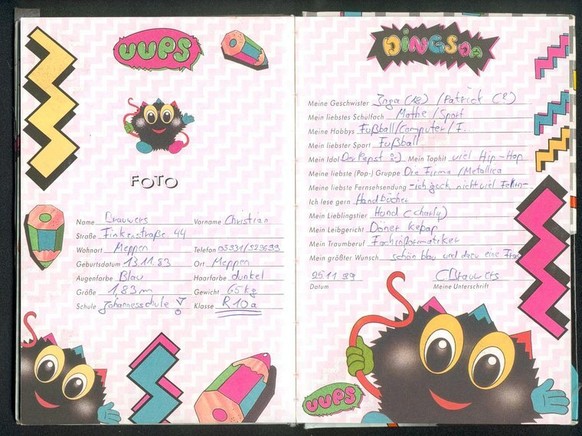 UUPS
FOTO
Name Brauwers Vorname Christian
Straße Finkenstraße 44
Wohnort Meppen Telefon
Geburtsdatum 13.11.83 Ort Meppen
Augenfarbe Blau Haarfarbe dunkel
Größe 1,83m Gewicht 65kg
Schule Johannesschule Klasse R10a
DINGSDA
Meine Geschwister Inga (18) / Patrick
Mein liebstes Schulfach Mathe / Sport
Meine Hobbys Fußball/Computer/
Mein liebster Sport Fußball
Mein Idol Der Papst :-) Mein Tophit viel Hip-Hop
Meine liebste (Pop-) Gruppe Die Firma / Metallica
Meine liebste Fernsehsendung
Ich lese gern Handbücher
Mein Lieblingstier Hund (Charly)
Mein Leibgericht Döner Kebap
Mein Traumberuf Fachinformatiker
Mein größter Wunsch schön blau und dazu eine
Datum Meine Unterschrift
CBrauwers
UUPS